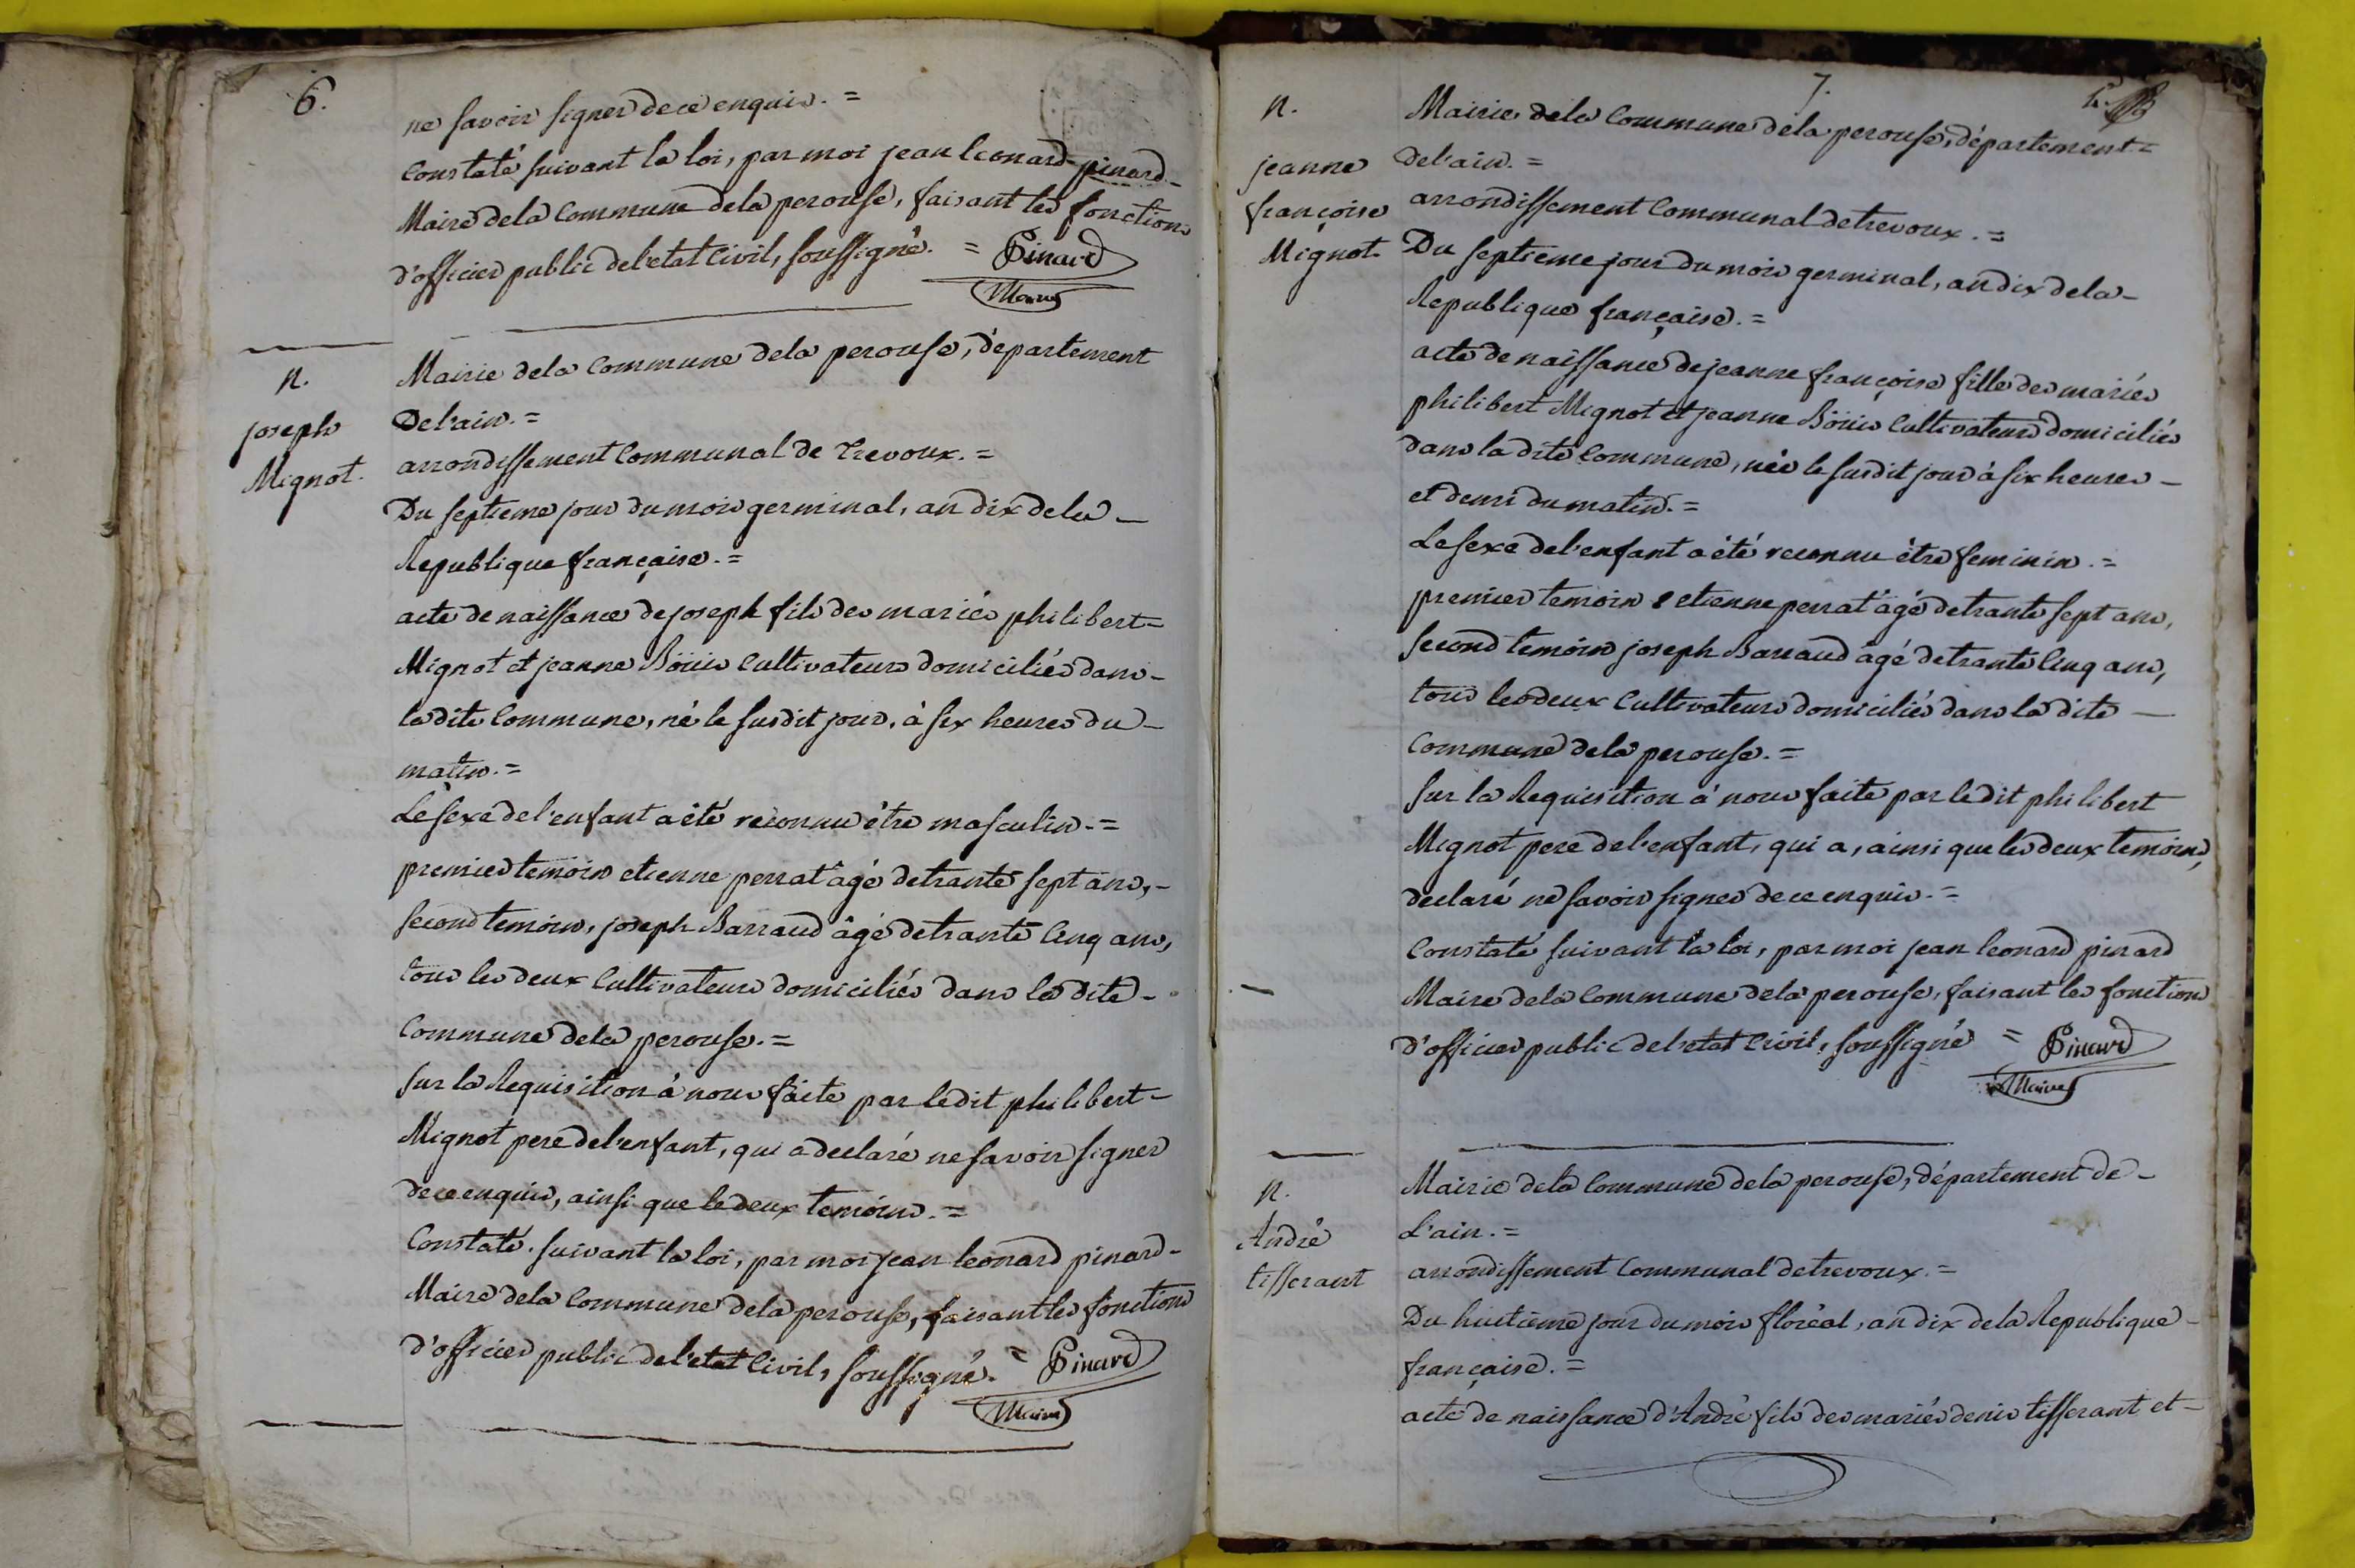 6.
ne savoir signer de ce enquis. =
Constaté suivant la loi, par moi jean leonard pinard -
Maire dela Commune dela perouse, faisant les fonctions
d'officier public del'etat Civil, soussigné. = Pinard
Maire
n.
joseph
Mignot.
Mairie dela Commune dela perouse, département
Del'ain. =
arrondissement Communal de Trevoux. =
Du septieme jour du mois germinal, an dix dela -
Republique française. =
acte de naissance de joseph fils des mariés philibert -
Mignot et jeanne Boüis Cultivateurs domiciliés dans -
la dite Commune, né le susdit jour, à six heures du -
matin. =
Le sexe del'enfant a été reconnu être masculin. =
premier temoin etienne perrat âgé detrante sept ans, -
second temoin, joseph Barraud âgé detrante Cinq ans,
tous les deux Cultivateurs domiciliés dans la dite -
Commune dela perouse. =
sur la Requisition à nous faite par ledit philibert -
Mignot pere del'enfant, qui a declaré ne savoir signer
de ce enquis, ainsi que le deux temoins. =
Constaté suivant la loi, par moi jean leonard pinard -
Maire dela Commune dela perouse, faisant les fonctions
d'officier public del'etat Civil, soussigné. = Pinard
Maire
7.
n.
jeanne
françoise
Mignot.
Mairie dela Commune dela perouse, département =
del'ain. =
arrondissement Communal detrevoux. =
Du septieme jour du mois germinal, an dix dela -
Republique française. =
acte de naissance de jeanne françoise fille des mariés
philibert Mignot et jeanne Boüis Cultivateurs domiciliés
dans la dite Commune, née le susdit jour à six heures -
et demi du matin. =
Le sexe del'enfant a été reconnu être feminin. =
premier temoin etienne perrat âgé detrante sept ans,
second temoin joseph Barraud âgé detrante Cinq ans,
tous les deux Cultivateurs domiciliés dans la dite -
Commune dela perouse. =
sur la Requisition à nous faite par le dit philibert
Mignot pere del'enfant, qui a, ainsi que les deux temoins,
declaré ne savoir signer de ce enquis. =
Constaté suivant la loi, par moi jean leonard pinard
Maire dela Commune dela perouse, faisant les fonctions
d'officier public del'etat Civil, soussigné = Pinard
Maire
n.
André
tisserant
Mairie dela Commune dela perouse, département de -
L'ain. =
arrondissement Communal detrevoux. =
Du huitieme jour du mois floréal, an dix dela Republique -
française. =
acte de naissance d'André fils des mariés denis tisserant et -